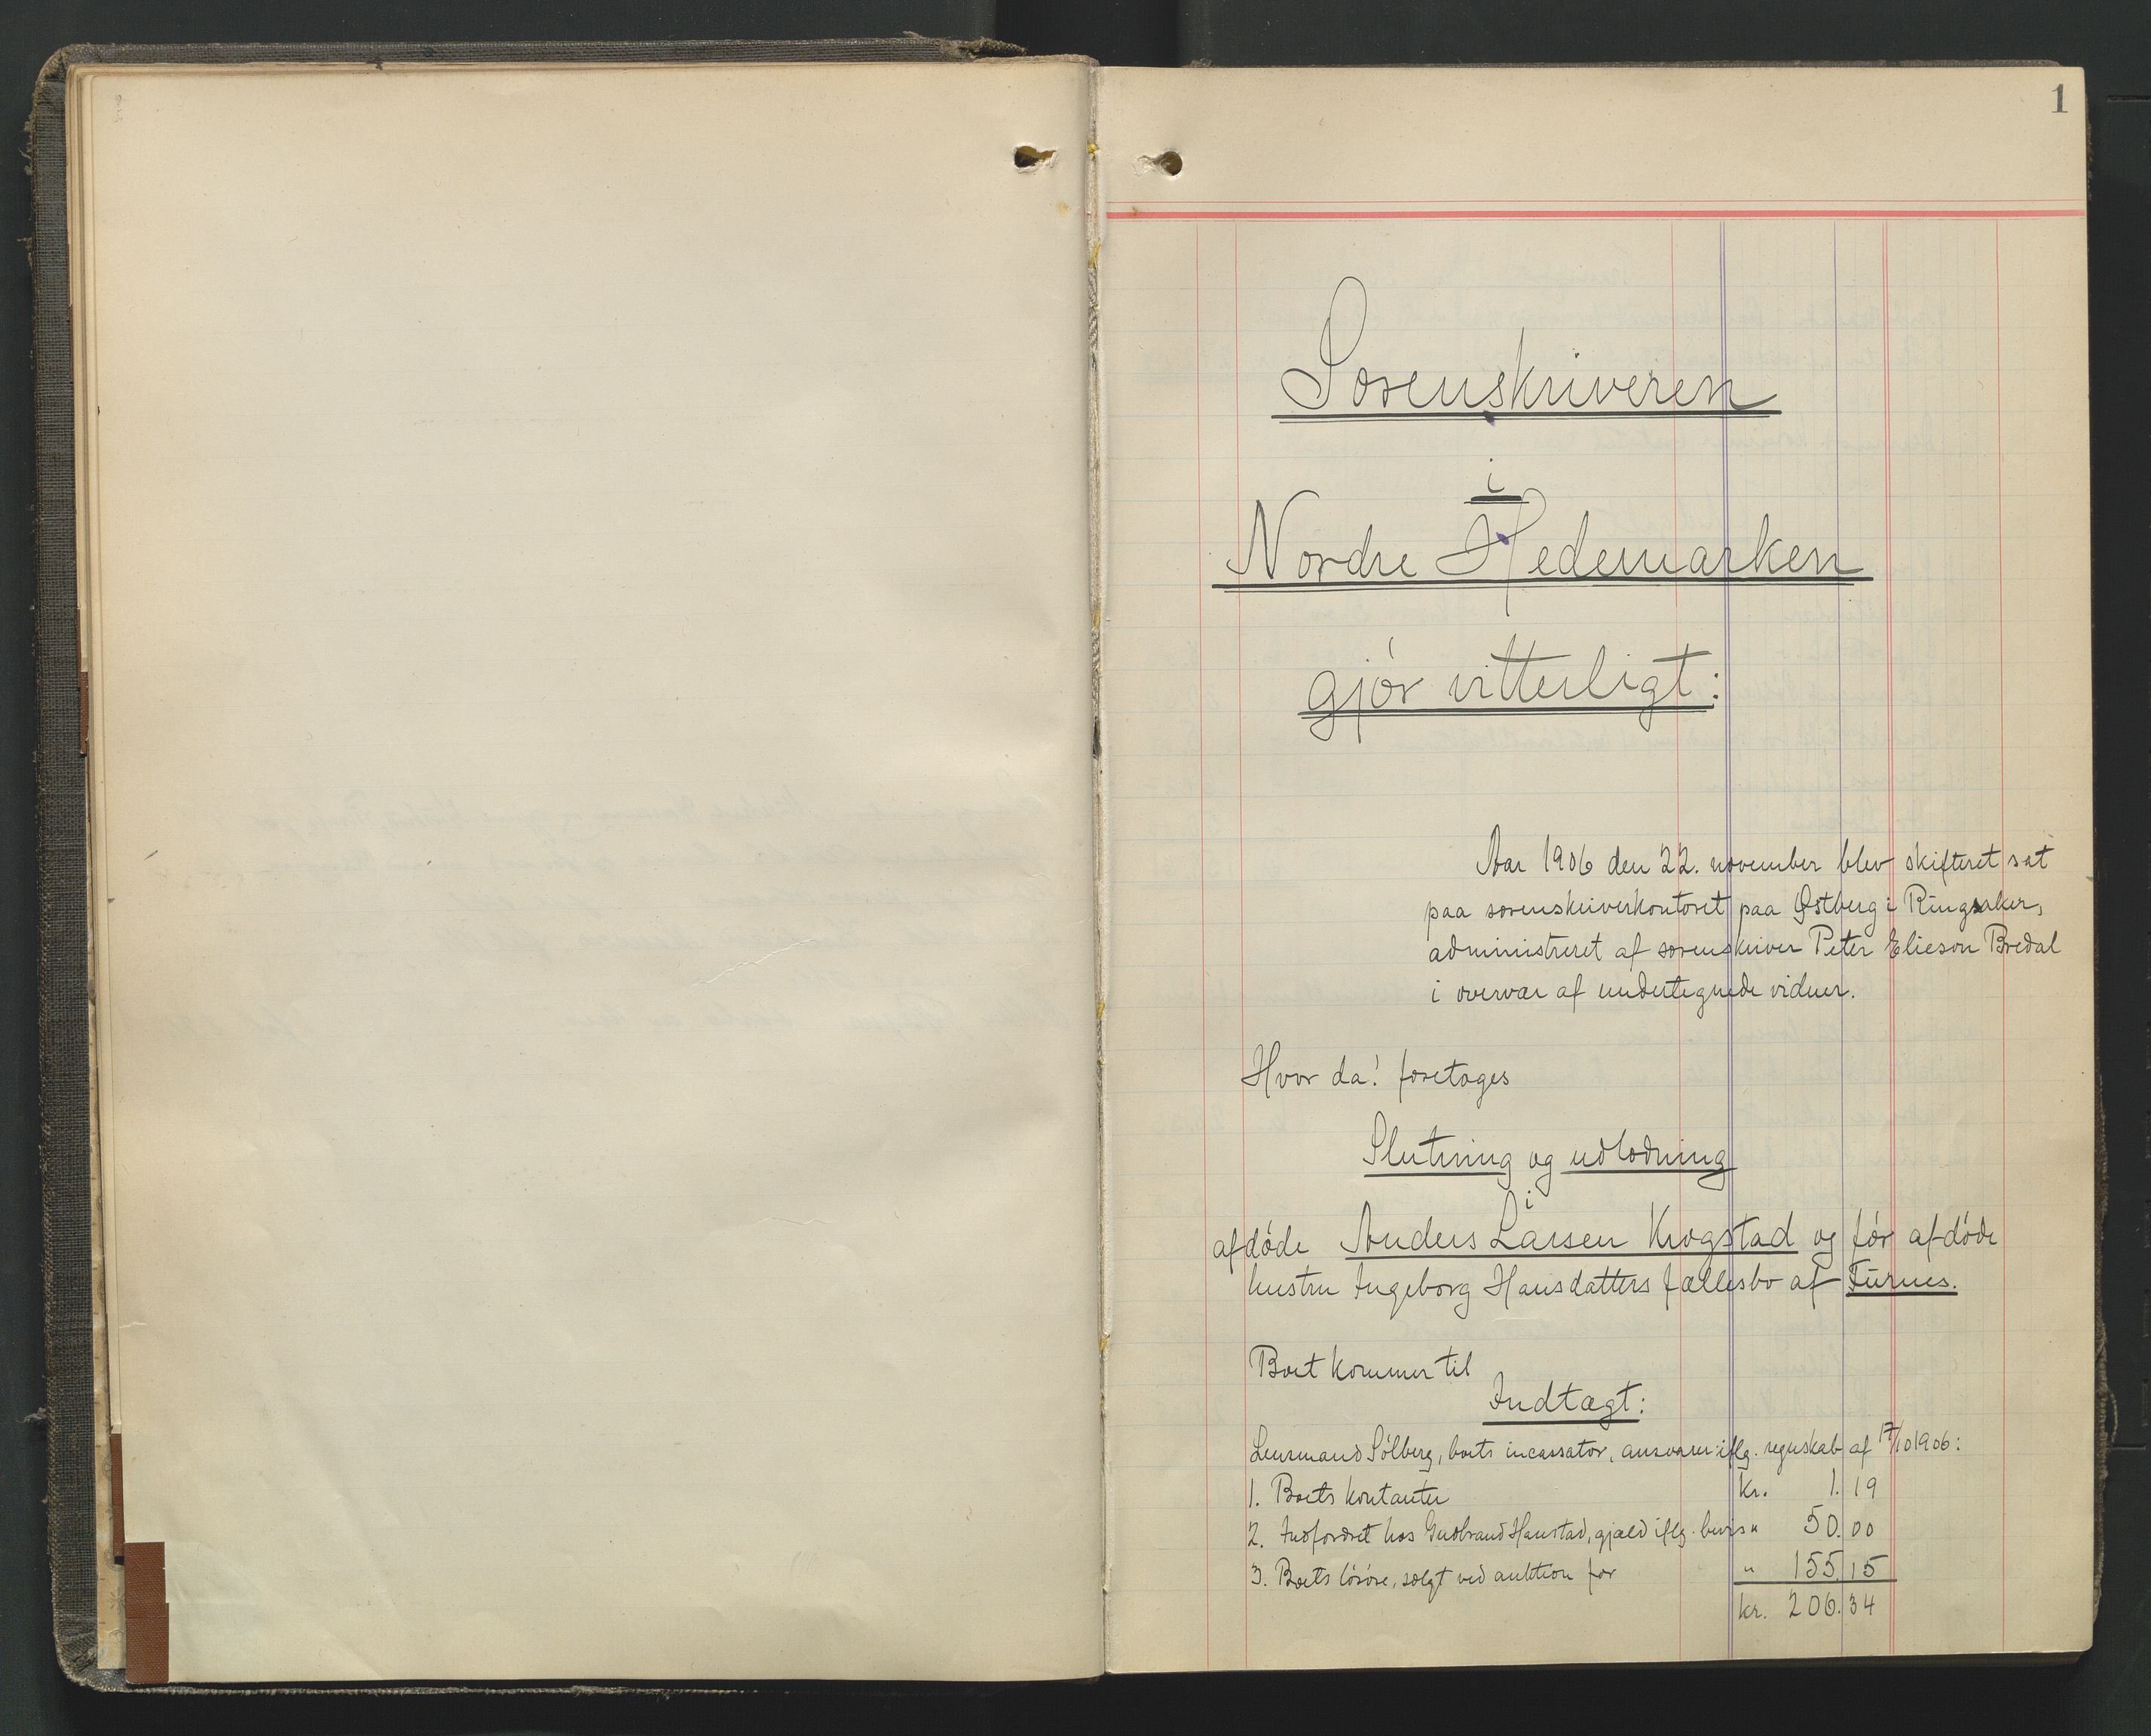 1
Sorenskriveren
i
Nordre Hedemarken
gjór vitterligt:
Aar 1906 den 22. november blev skifteret sat
paa sorenskriverkontoret paa Østberg i Ringsaker,
administreret af sorenskriver Peter Elieson Bredal
i overvær af undertegnede vidner.
Hvor da! foretoges
Slutning og udlodning
i
afdóde Anders Larsen Krogstad og fór afdóde
hustru Ingeborg Hansdatters fællesbo af Furnes.
Boet kommer til
Indtægt:
Lensmand Sólberg, boets incassator, ansvarer iflg. regnskab af 17/10 1906:
1. Boets kontanter kr. 1.19
2. Indfordret hos Gudbrand Hanstad, gjæld iflg. bevis " 50.00
3. Boets lósóre, solgt ved auktion for " 155.15
kr. 206.34